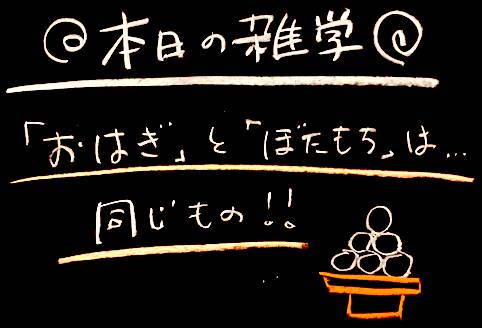 @本日の雑学@
「おはぎ」と「ぼたもち」は...
同じもの!!